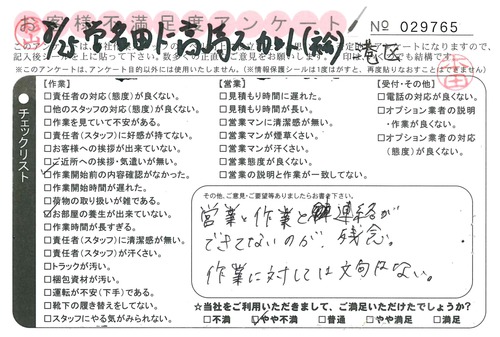 お客様不満足度アンケート
No 029765
港区
※このアンケートは、アンケート目的以外には使用いたしません。(※情報保護シールは1度はがすと、再度貼りなおすことはできません。)
チェックリスト
【作業】
□責任者の対応(態度)が良くない。
□他のスタッフの対応(態度)が良くない。
□作業を見ていて不安がある。
□責任者(スタッフ)に好感が持てない。
□お客様への挨拶が出来ていない。
□ご近所への挨拶・気遣いが無い。
□作業開始前の内容確認がなかった。
□作業開始時間が遅れた。
□荷物の取り扱いが雑である。
□お部屋の養生が出来ていない。
□作業時間が長すぎる。
□責任者(スタッフ)に清潔感が無い。
□責任者(スタッフ)が汗くさい。
□トラックが汚い。
□梱包資材が汚い。
□運転が不安(下手)である。
□靴下の履き替えをしてない。
□スタッフにやる気がみられない。
【営業】
□見積もり時間に遅れた。
□見積もり時間が長い。
□営業マンに清潔感が無い。
□営業マンが煙草くさい。
□営業マンが汗くさい。
□営業態度が良くない。
□営業の説明と作業が一致してない。
【受付・その他】
□電話の対応が良くない。
□オプション業者の説明・作業が良くない。
□オプション業者の対応(態度)が良くない。
その他、ご意見・ご要望等ありましたらお書き下さい。
営業と作業と連絡が
できてないのが、残念。
作業に対しては文句はない。
☆当社をご利用いただきまして、ご満足いただけたでしょうか?
□不満 □やや不満 □普通 □やや満足 □満足